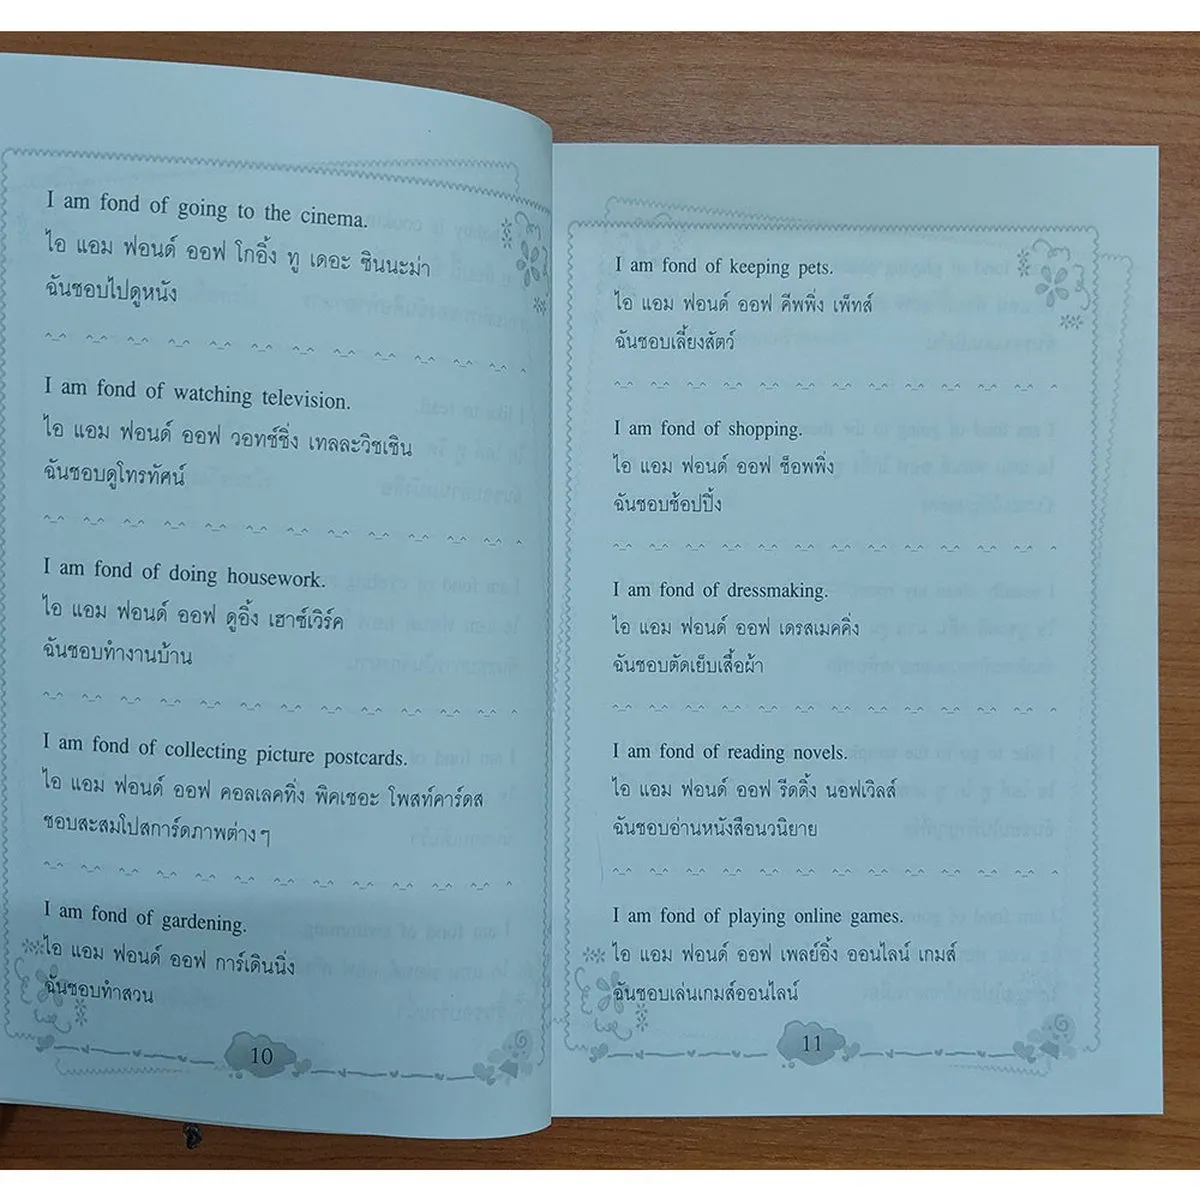 I am fond of going to the cinema.
ไอ แอม ฟอนด์ ออฟ โกอิ้ง ทู เดอะ ซินนะม่า
ฉันชอบไปดูหนัง
I am fond of watching television.
ไอ แอม ฟอนด์ ออฟ วอทช์ชิ่ง เทลละวิชเชิน
ฉันชอบดูโทรทัศน์
I am fond of doing housework.
ไอ แอม ฟอนด์ ออฟ ดูอิ้ง เฮาซ์เวิร์ค
ฉันชอบทำงานบ้าน
I am fond of collecting picture postcards.
ไอ แอม ฟอนด์ ออฟ คอลเลคทิ่ง พิคเชอะ โพสท์คาร์ดส
ชอบสะสมโปสการ์ดภาพต่างๆ
I am fond of gardening.
ไอ แอม ฟอนด์ ออฟ การ์เดินนิ่ง
ฉันชอบทำสวน
10
I am fond of keeping pets.
ไอ แอม ฟอนด์ ออฟ คีพพิ่ง เพ็ทส์
ฉันชอบเลี้ยงสัตว์
I am fond of shopping.
ไอ แอม ฟอนด์ ออฟ ช็อพพิ่ง
ฉันชอบช้อปปิ้ง
I am fond of dressmaking.
ไอ แอม ฟอนด์ ออฟ เดรสเมคคิ่ง
ฉันชอบตัดเย็บเสื้อผ้า
I am fond of reading novels.
ไอ แอม ฟอนด์ ออฟ รีดดิ้ง นอฟเวิลส์
ฉันชอบอ่านหนังสือนวนิยาย
I am fond of playing online games.
ไอ แอม ฟอนด์ ออฟ เพลย์อิ้ง ออนไลน์ เกมส์
ฉันชอบเล่นเกมส์ออนไลน์
11